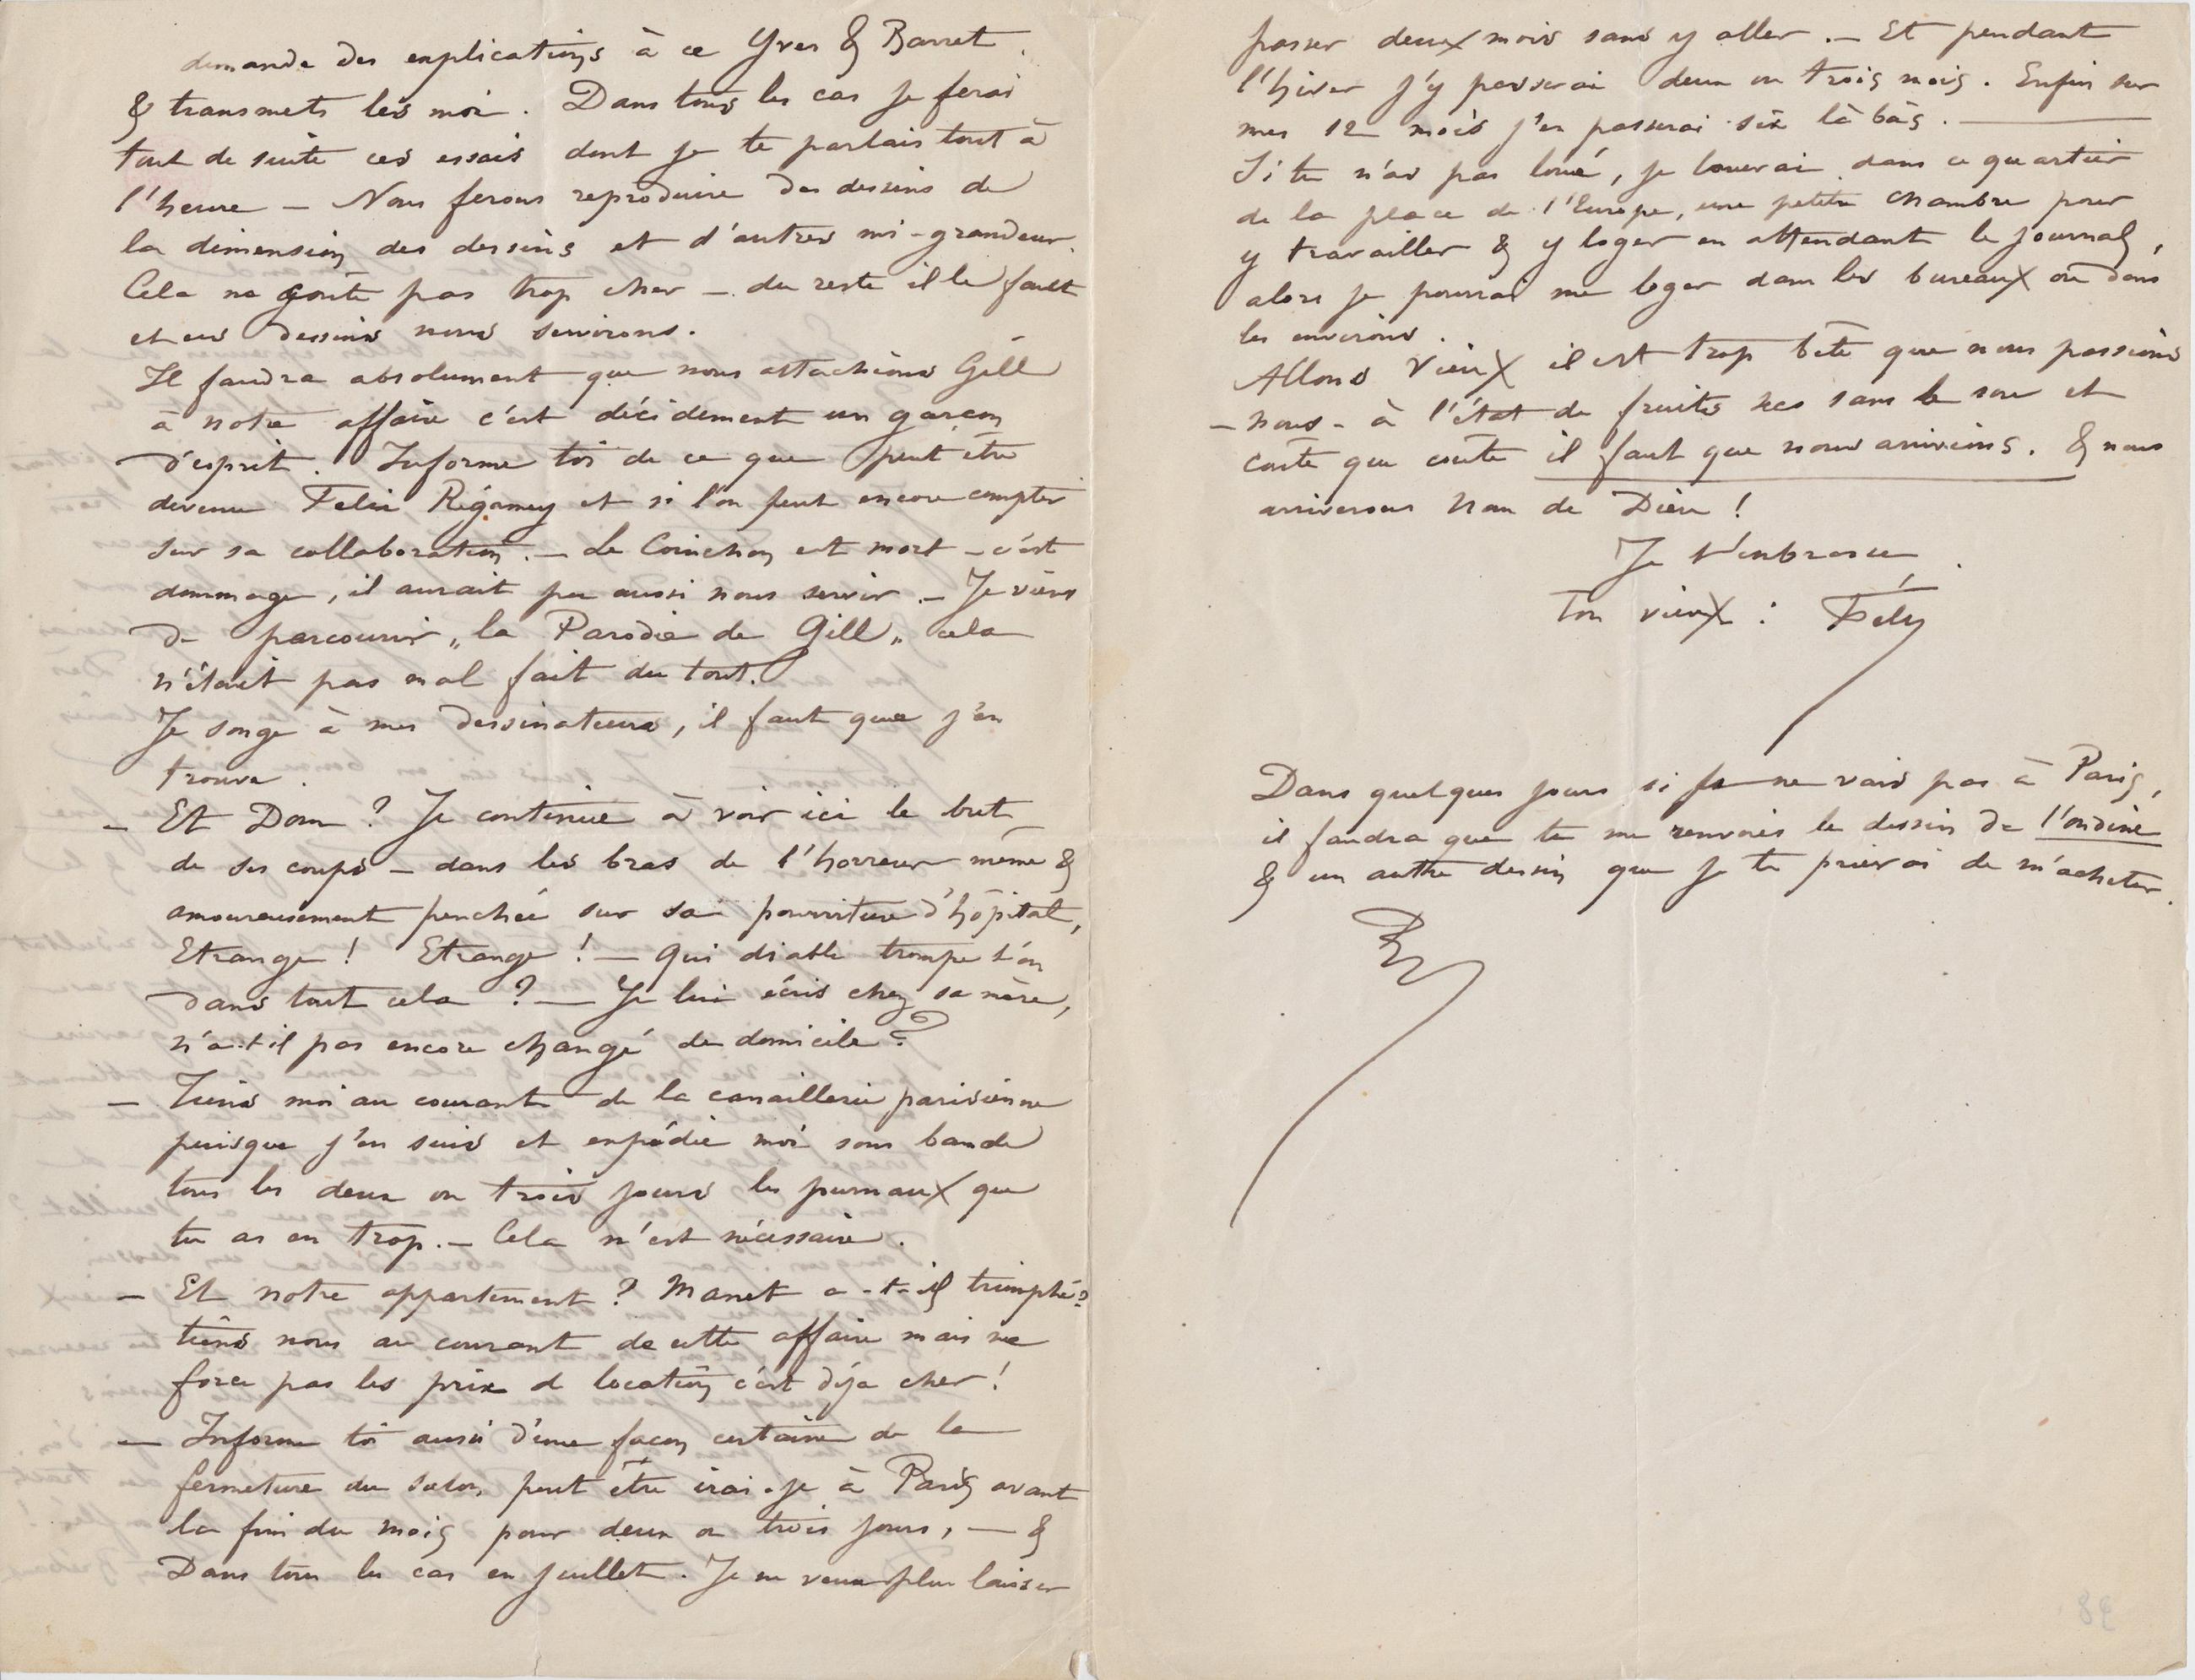 demande des explications à ce Yves & Barret
& transmets les moi. Dans tous les cas je ferai
tout de suite ces essais dont je te parlais tout à
l'heure – Nous ferons reproduire des dessins de
la dimension des dessins et d'autres mi-grandeur.
Cela ne coûte pas trop cher – du reste il le faut
et ces dessins nous serviront.
Il faudra absolument que nous attachions Gill
à notre affaire c'est décidement un garçon
d'esprit. Informe toi de ce que peut être
devenu Felix Régamey et si l'on peut encore compter
sur sa collaboration. – Le Cornichon est mort – c'est
dommage, il aurait pu aussi nous servir. – Je viens
de parcourir „la Parodie de Gill„ cela
n'était pas mal fait du tout.
Je songe à mes dessinateurs, il faut que j'en
trouve.
– Et Dom ? Je continue à voir ici le but
de ses coups – dans les bras de l'horreur même &
amoureusement penchée sur sa pourriture d'hôpital,
Etrange ! Etrange ! – Qui diable trompe t'on
dans tout cela ? – Je lui écris chez sa mère,
n'a-t-il pas encore changé de domicile ?
– Tiens moi au courant de la canaillerie parisienne
puisque j'en suis et expédie moi sous bande
tous les deux ou trois jours les journaux que
tu as en trop. – Cela m'est nécessaire.
– Et notre appartement ? Manet a-t-il triomphé ?
tiens nous au courant de cette affaire mais ne
force pas les prix de location c'est déja cher !
– Informe toi aussi d'une façon certaine de la
fermeture du salon, peut être irai-je à Paris avant
la fin du mois pour deux ou trois jours, – &
Dans tous les cas en juillet. Je ne veux plus laisser
passer deux mois sans y aller. – Et pendant
l'hiver j'y passerai deux ou trois mois. Enfin sur
mes 12 mois j'en passerai six là bàs. –
Si tu n'as pas loué, je louerai dans ce quartier
de la place de l'Europe, une petite chambre pour
y travailler & y loger en attendant le journal,
alors je pourrai me loger dans les bureaux ou dans
les environs.
Allons Vieux il est trop bête que nous passions
– nous – à l'état de fruits secs sans le sou et
coute que coute il faut que nous arrivions. & nous
arriverons Nom de Dieu !
Je t'embrasse.
Ton vieux : Fély
Dans quelques jours si je ne vais pas à Paris,
il faudra que tu me renvoies le dessin de l'ondine
& un autre dessin que je te prierai de m'acheter.
38